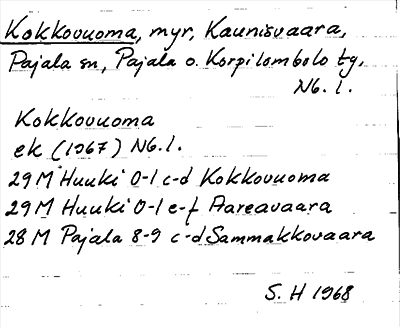 Kokkovuoma, myr, Kaunisvaara,
Pajala sn, Pajala o. Korpilombolo tg.
Nb. l.
Kokkovuoma
ek (1967) Nb. l.
29 M Huuki 0-1 c-d Kokkovuoma
29 M Huuki 0-1 e-f Aareavaara
28 M Pajala 8-9 c-d Sammakkovaara
S. H 1968